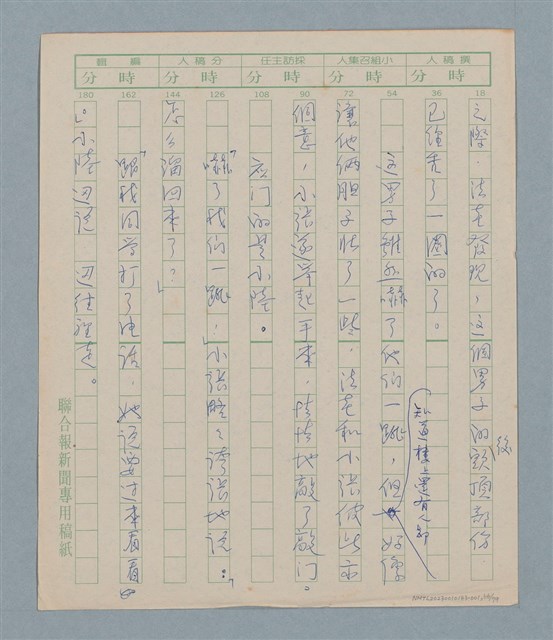 撰稿人 小組召集人 採訪主任 分稿人 編輯
時 分 時 分 時 分 時 分 時 分
18 36 54 72 90 108 126 144 162 180
之際,法老發現,這個男子的額頂部份
後
已經禿了一圈的了。
這男子雖然嚇了他們一跳,但好像
知道樓上還有人卻
讓他倆胆子壯了一些,法老和小張彼此示
個意,小張遂舉起手來,悄悄地敲了敲門。
应门的是小陸。
「嚇了我們一跳!」小張誇張地說:「
怎么溜回來了?」
「跟我同學打了电話,她說要过來看看
。」小陸边說 边往裡走。
聯合報新聞專用稿紙